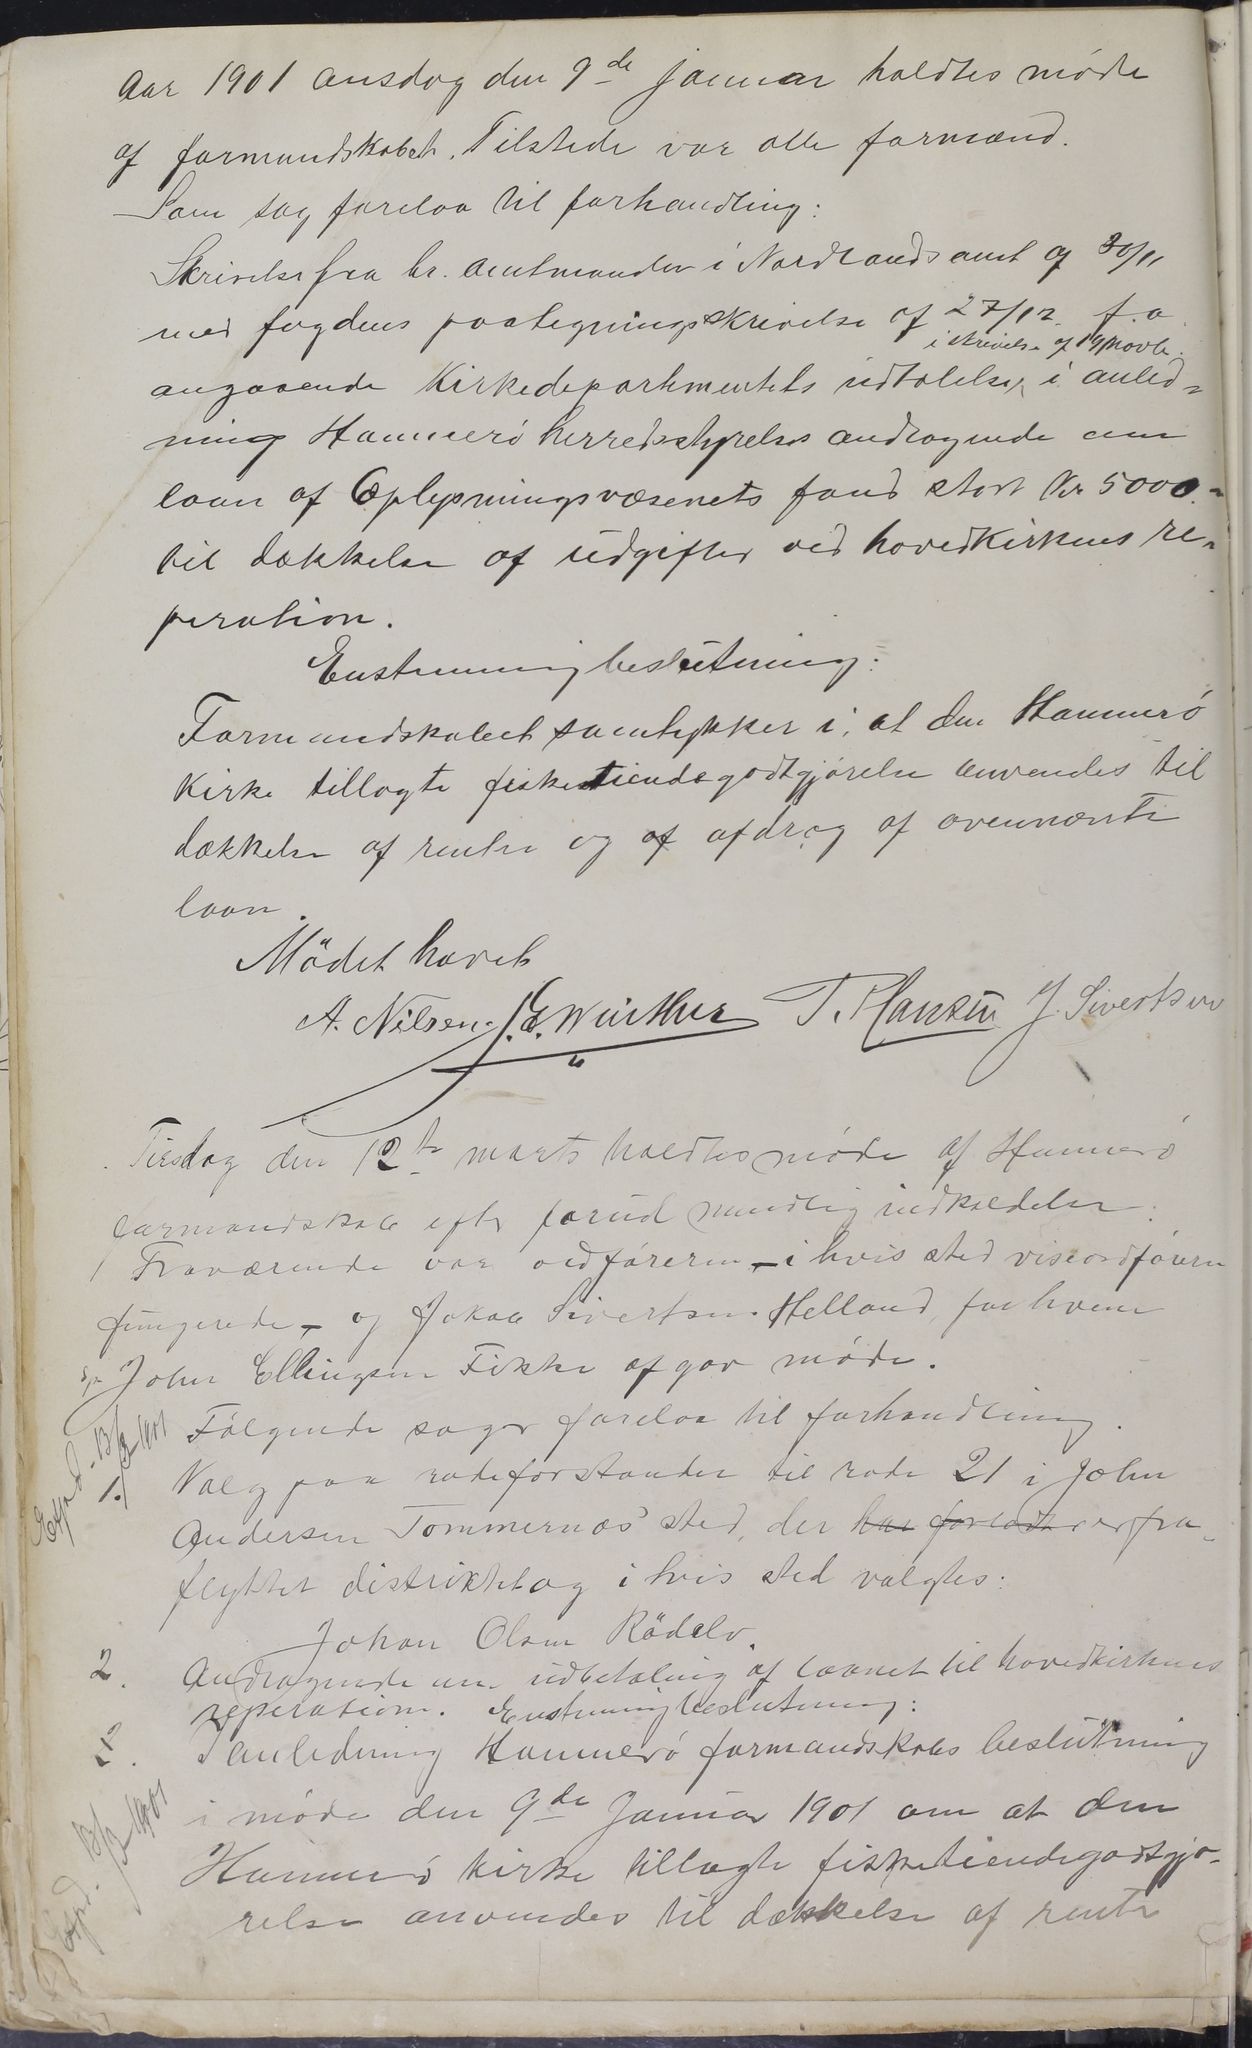 Aar 1901 onsdag den 9de januar holdtes møde
af formandskabet. Tilstede var alle formænd.
Som sag forelaa til forhandling:
Skrivelse fra hr. amtmanden i Nordlands amt af 30/11
med fogdens paategningsskrivelse af 27/12 f.a
i skrivelse af 19 novbr.
angaaende Kirkedepartementets udtalelse i anled-
ning Hammerø herredsstyrelses andragende om
laan af Oplysningsvæsenets fond stort Kr 5000.-
til dækkelse af udgifter ved hovedkirkens re-
peration.
Enstemmig beslutning:
Formandskabet samtykker i, at den Hammerø
Kirke tillagte fisketiendegodtgjørelse anvendes til
dækkelse af renter og af afdrag af ovennævnte
laan.
Mødet hævet
A. Nilsen. J. E. Winther T. Hansen J. Sivertsen
Tirsdag den 12te marts holdtes møde af Hammerø
formandskab efter forud mundlig indkaldelse.
Fraværende var ordføreren - i hvis sted viseordføren
fungerede - og Jakob Sivertsen Helland, for hvem
John Ellingsen Fikke afgav møde.
Følgende sager forelaa til forhandling.
Expd. 13/3 1901
1./ Valg paa rodeforstander til rode 21 i John
Andersen Tommernæs sted, der har forladt er fra-
flyttet distriktet og i hvis sted valgtes:
Johan Olsen Rödelv.
2. Andragende om udbetaling af laanet til hovedkirkens
reperation. Enstemmig beslutning:
I anledning Hammerø formandskabs beslutning
i møde den 9de Januar 1901 om at den
Expd. 13/3 1901
Hammerø kirke tillagte fisketiendegodtgjø-
relse anvendes til dækkelse af rente